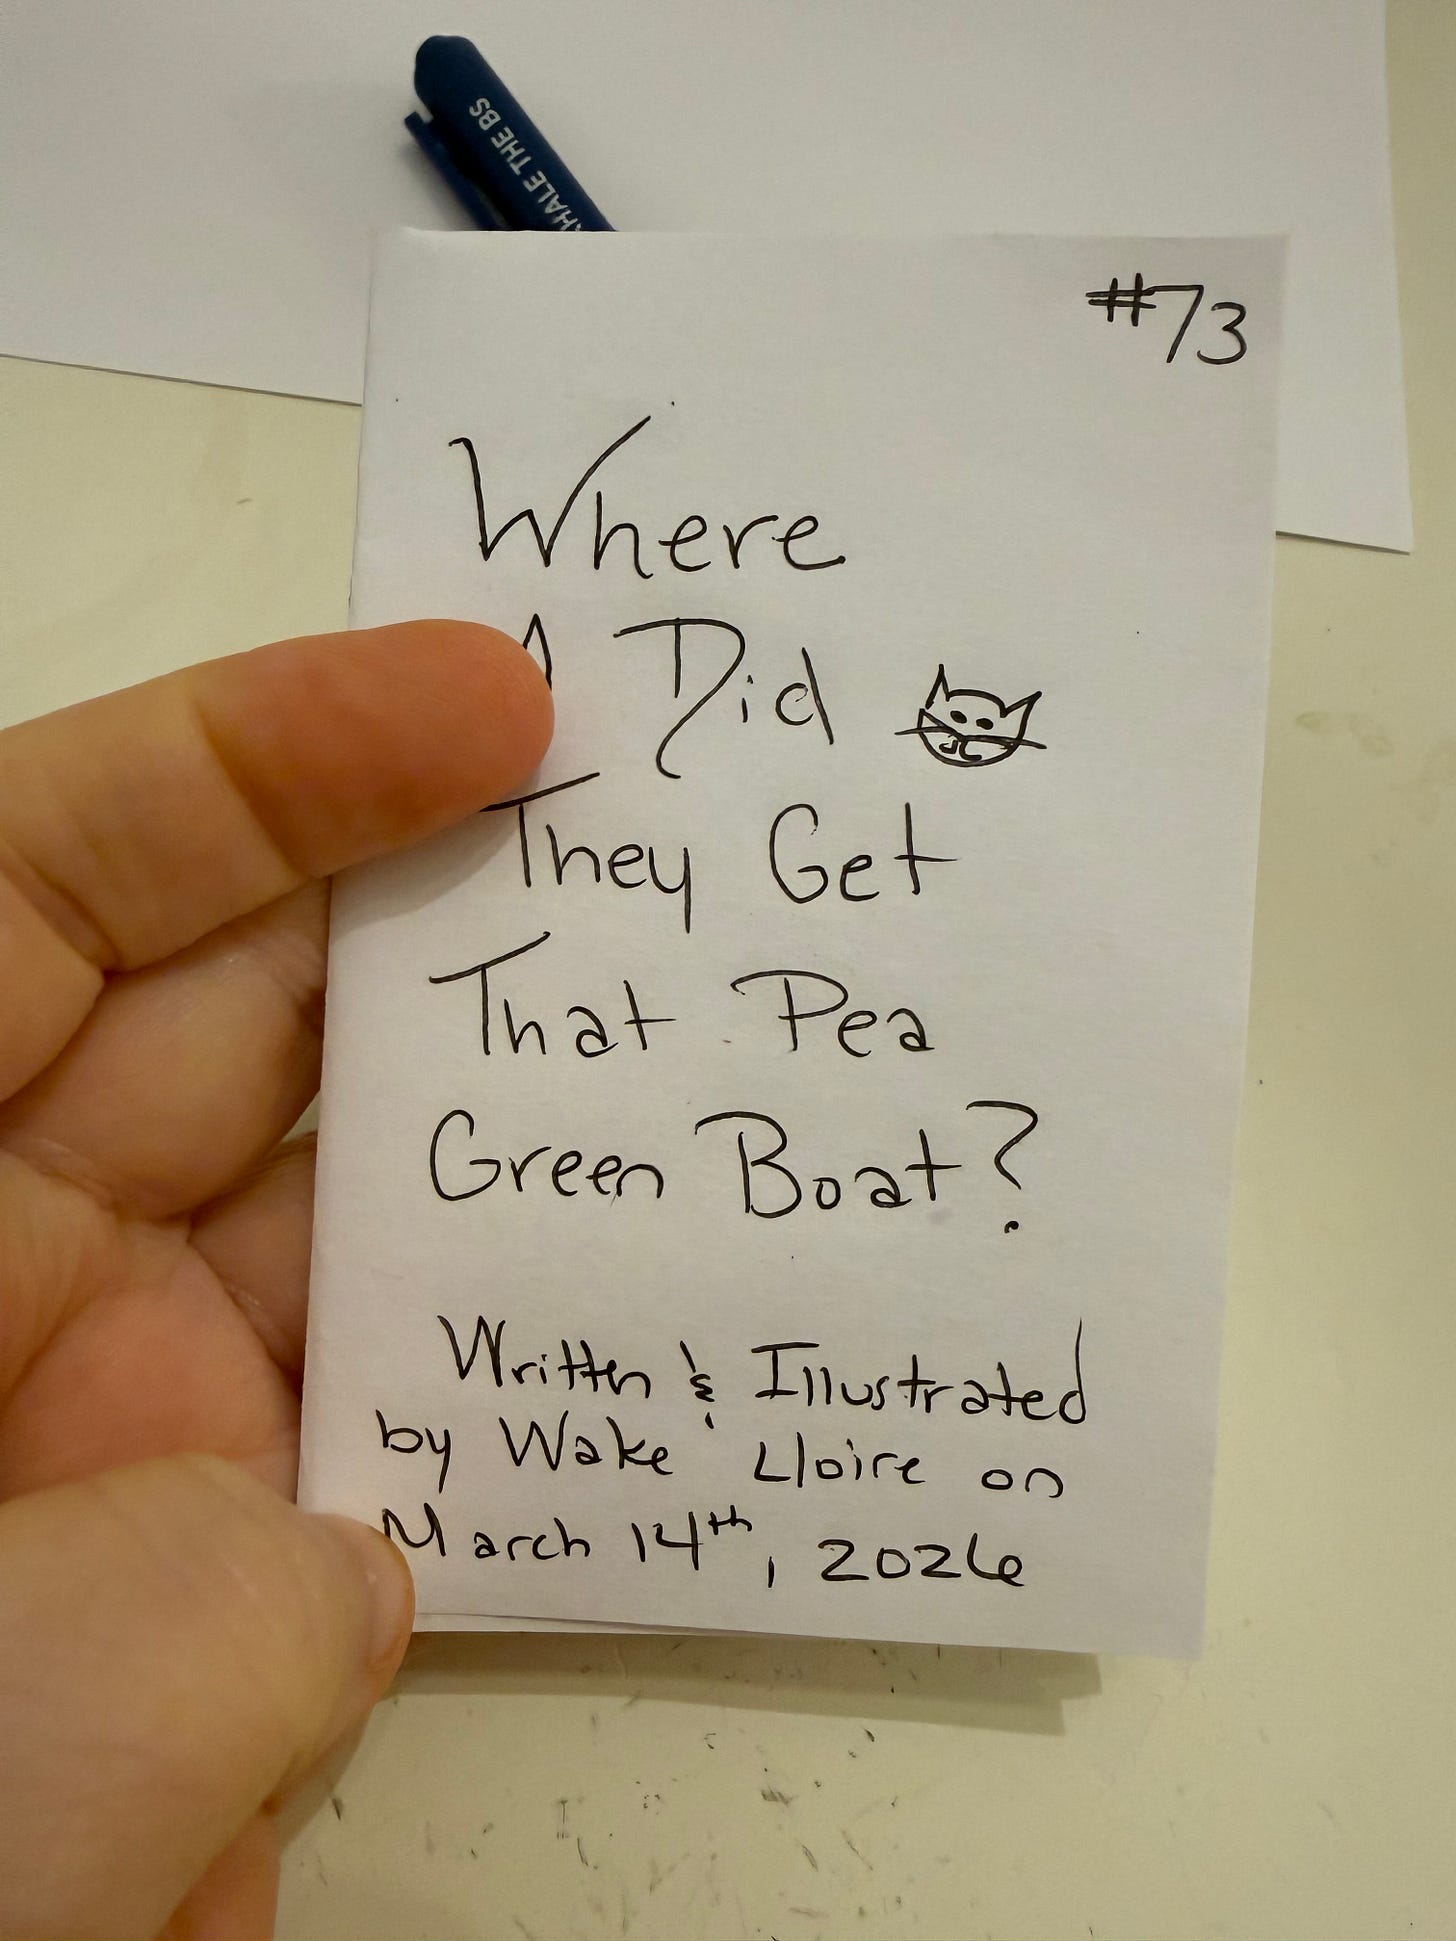 HALE THE BS
#73
Where
Did
They Get
That Pea
Green Boat?
Written & Illustrated
by Wake Lloire on
March 14th, 2026